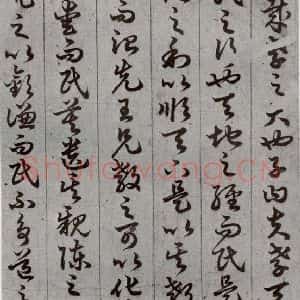 哉孝之大也子曰夫孝天
民之行也天地之經而民是
之利以順天下是以其教
而治先王見教之可以化
愛而民莫遺其親陳之
先之以敬讓而民不爭道之
Shufawang.CN